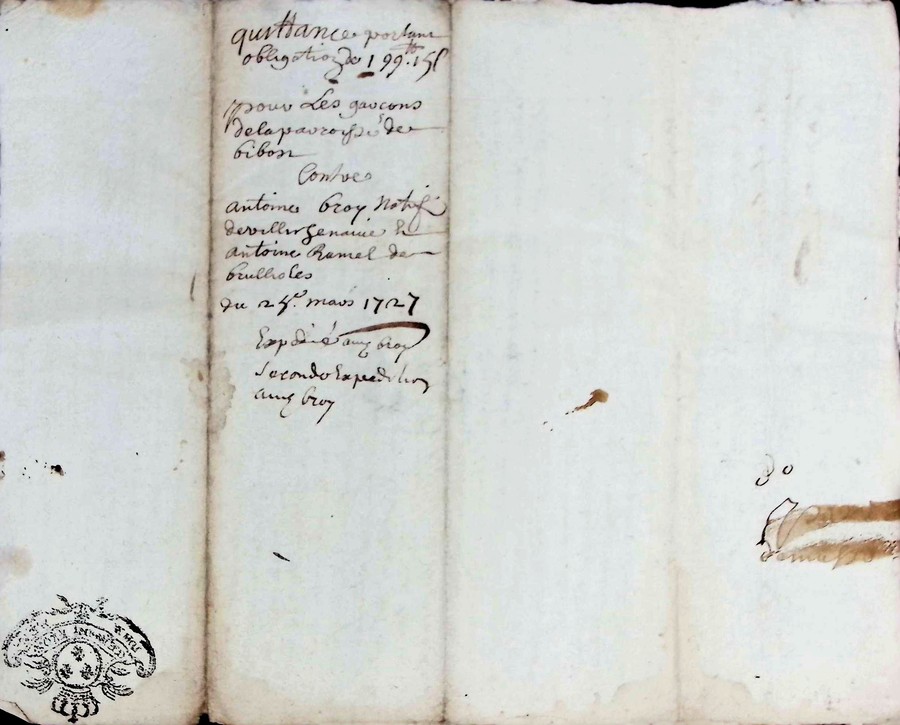 quittance portant
obligation de 199.tt 15 s
pour Les garcons
de la parroisse de
bibost
Contre
antoine broy
de et
antoine Ramel de
brullioles
du 25e. mars 1727
Expedié aux broy
seconde Expedition
aux broy